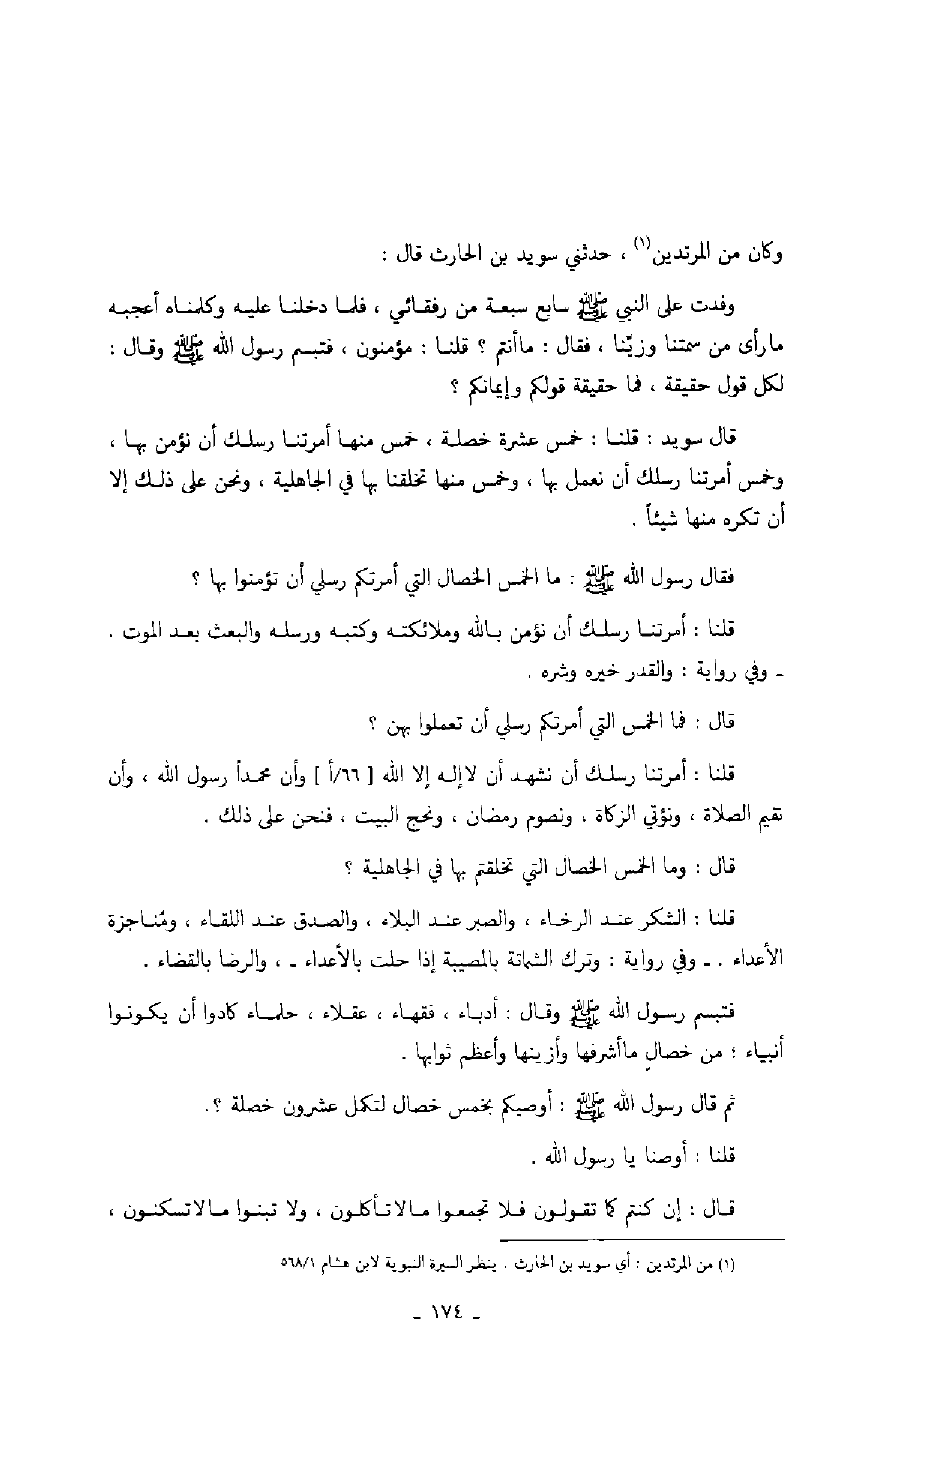 وكان من المرتدين(١) ، حدثني سويد بن الحارث قال :
وفدت على النبي ﷺ سابع سبعة من رفقائي ، فلما دخلنا عليه وكلمناه أعجبه
مارأى من سمتنا وزيّنا ، فقال : ماأنتم ؟ قلنا : مؤمنون ، فتبسم رسول الله ﷺ وقال :
لكل قول حقيقة ، فما حقيقة قولكم وإيمانكم ؟
قال سويد : قلنا : خمس عشرة خصلة ، خمس منها أمرتنا رسلك أن نؤمن بها ،
وخمس أمرتنا رسلك أن نعمل بها ، وخمس منها تخلقنا بها في الجاهلية ، ونحن على ذلك إلا
أن تكره منها شيئاً .
فقال رسول الله ﷺ : ما الخمس الخصال التي أمرتكم رسلي أن تؤمنوا بها ؟
قلنا : أمرتنا رسلك أن نؤمن بالله وملائكته وكتبه ورسله والبعث بعد الموت .
ـ وفي رواية : والقدر خيره وشره .
قال : فما الخمس التي أمرتكم رسلي أن تعملوا بهن ؟
قلنا : أمرتنا رسلك أن نشهد أن لاإله إلا الله [ ٦٦/أ ] وأن محمداً رسول الله ، وأن
نقيم الصلاة ، ونؤتي الزكاة ، ونصوم رمضان ، ونحج البيت ، فنحن على ذلك .
قال : وما الخمس الخصال التي تخلقتم بها في الجاهلية ؟
قلنا : الشكر عند الرخاء ، والصبر عند البلاء ، والصدق عند اللقاء ، ومُناجزة
الأعداء . ـ وفي رواية : وترك الشماتة بالمصيبة إذا حلت بالأعداء ـ ، والرضا بالقضاء .
فتبسم رسول الله ﷺ وقال : أدباء ، فقهاء ، عقلاء ، حلماء كادوا أن يكونوا
أنبياء ؛ من خصالٍ ماأشرفها وأزينها وأعظم ثوابها .
ثم قال رسول الله ﷺ : أوصيكم بخمس خصال لتكمل عشرون خصلة ؟.
قلنا : أوصنا يا رسول الله .
قال : إن كنتم كما تقولون فلا تجمعوا مالاتأكلون ، ولا تبنوا مالاتسكنون ،
(١) من المرتدين : أي سويد بن الحارث . ينظر السيرة النبوية لابن هشام ٥٦٨/١
ـ ١٧٤ ـ